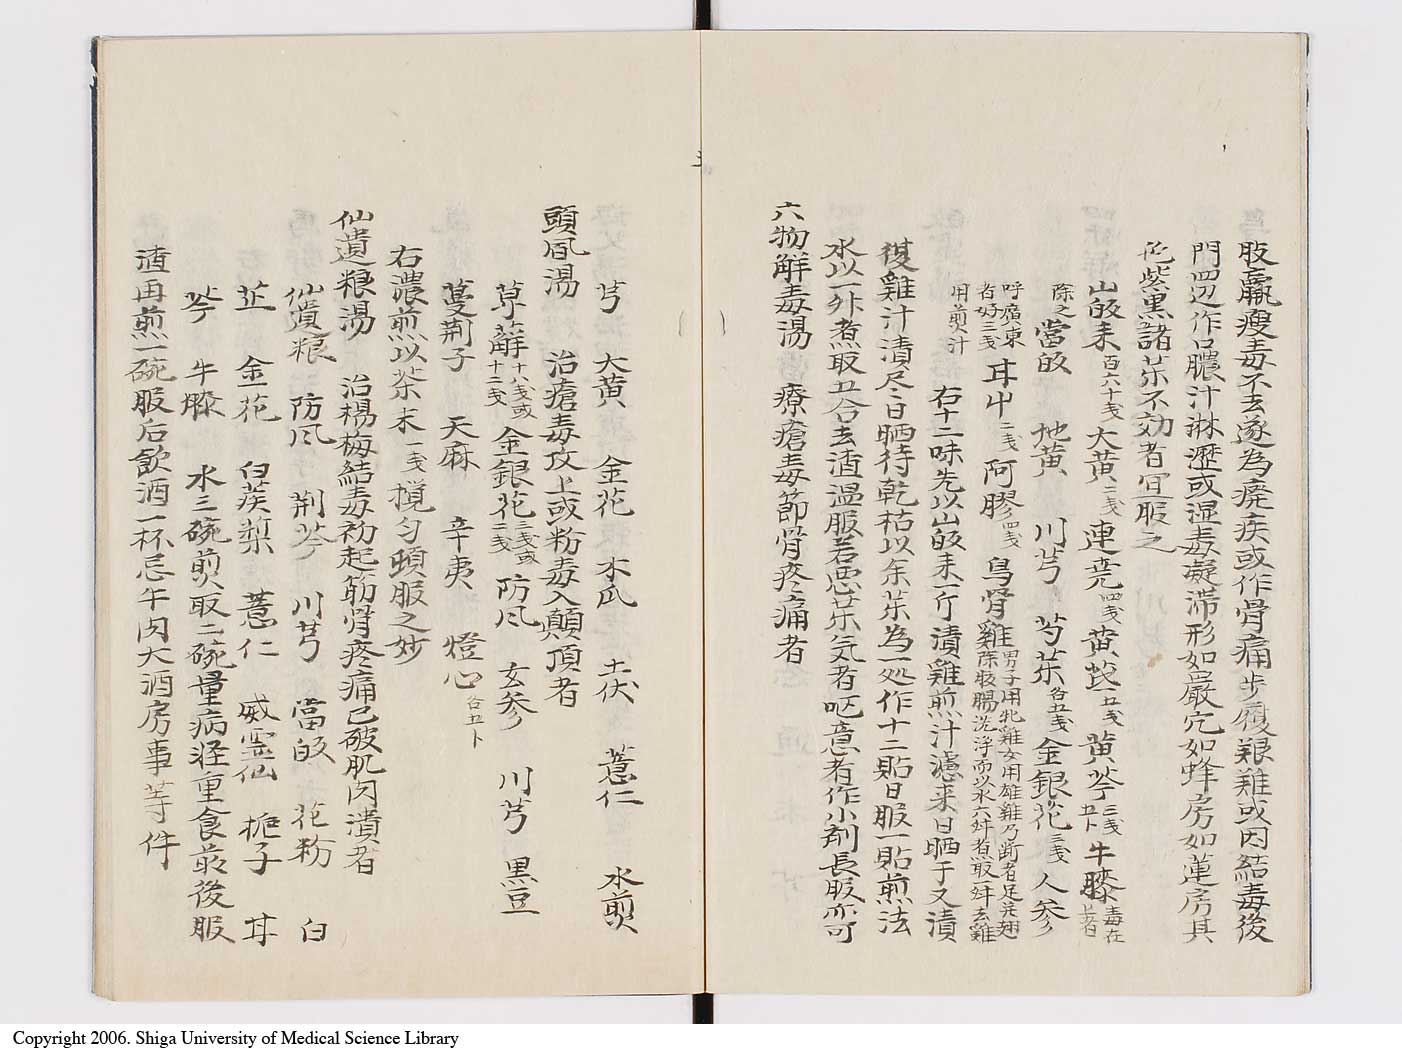 股羸瘦毒不去遂為癈疾或作骨痛步履艱難或因結毒後
門四辺作口膿汁淋瀝或湿毒凝滞形如嵓穴如蜂房如蓮房其
色紫黒諸茶不効者冝服之
山皈来百六十戔 大黄二戔 連堯四戔 黄茋一五戔 黄芩三戔五卜 牛膝毒在上者
除之 當皈 地黄 川芎 芍茶各五戔 金銀花三戔 人参
呼廣東者好三戔 耳屮二戔 阿膠四戔 烏骨雞男子用牝雞女用雄雞乃断者足并翅除肢腸洗浄而以水六舛煮取一舛去雞
用煎汁
右十二味先以山皈来一斤漬雞煎汁濾来日晒于又漬
復雞汁漬尽日晒待乾枯以余茶為一処作十二貼日服一貼煎法
水以一舛煮取五合去渣温服若悪茶気者呕意者作小剤長服亦可
六物解毒湯 療瘡毒節骨疼痛者
芎 大黄 金花 木瓜 土伏 薏仁 水煎
頭風湯 治瘡毒攻上或粉毒入顛頂者
草薢十八戔或十二戔 金銀花三戔或二戔 防風 玄参 川芎 黒豆
蔓荊子 天麻 辛夷 燈心各五卜
右濃煎以茶末一戔攪匀頓服之妙
仙遺粮湯 治楊梅結毒初起筋骨疼痛已破肌肉潰者
仙遺粮 防風 荆芥 川芎 當皈 花粉 白
芷 金花 白蒺藜 薏仁 威霊仙 梔子 耳
芩 牛膝 水三碗煎取二碗量病軽重食前後服
渣再煎一碗服后飲酒一杯忌牛肉大酒房事等件
Copyright 2006. Shiga University of Medical Science Library